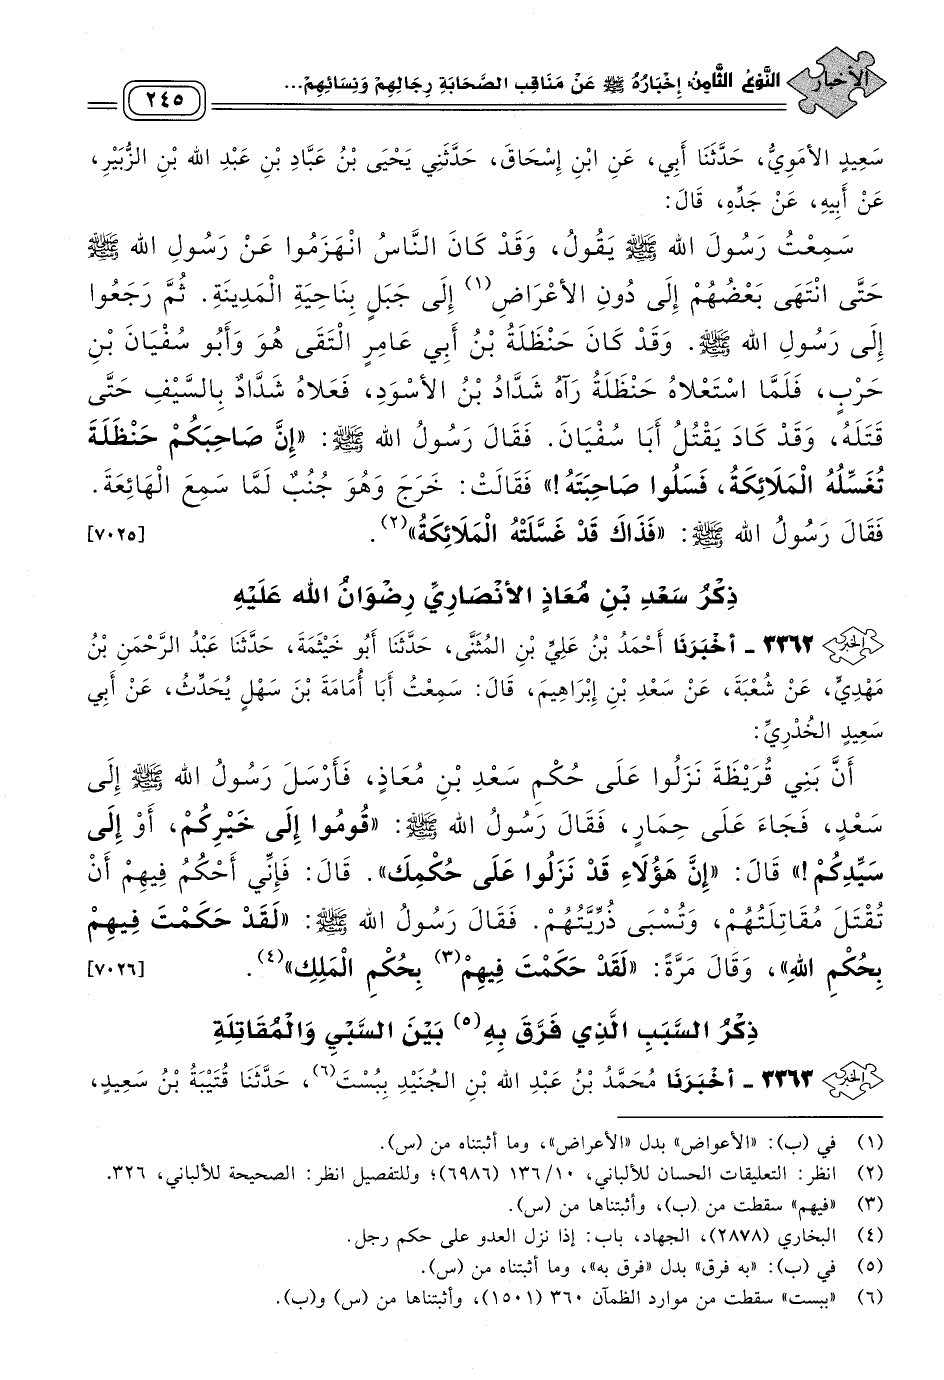 الأخبار
النَّوْعُ الثَّامِنُ: إِخْبَارُهُ ﷺ عَنْ مَنَاقِبِ الصَّحَابَةِ رِجَالِهِمْ وَنِسَائِهِمْ...
٢٤٥
سَعِيدٍ الأُمَوِيُّ، حَدَّثَنَا أَبِي، عَنِ ابْنِ إِسْحَاقَ، حَدَّثَنِي يَحْيَى بْنُ عَبَّادِ بْنِ عَبْدِ اللهِ بْنِ الزُّبَيْرِ،
عَنْ أَبِيهِ، عَنْ جَدِّهِ، قَالَ:
سَمِعْتُ رَسُولَ اللهِ ﷺ يَقُولُ، وَقَدْ كَانَ النَّاسُ انْهَزَمُوا عَنْ رَسُولِ اللهِ ﷺ
حَتَّى انْتَهَى بَعْضُهُمْ إِلَى دُونِ الأَعْرَاضِ(١) إِلَى جَبَلٍ بِنَاحِيَةِ الْمَدِينَةِ. ثُمَّ رَجَعُوا
إِلَى رَسُولِ اللهِ ﷺ. وَقَدْ كَانَ حَنْظَلَةُ بْنُ أَبِي عَامِرٍ الْتَقَى هُوَ وَأَبُو سُفْيَانَ بْنِ
حَرْبٍ، فَلَمَّا اسْتَعْلَاهُ حَنْظَلَةُ رَآهُ شَدَّادُ بْنُ الأَسْوَدِ، فَعَلاهُ شَدَّادٌ بِالسَّيْفِ حَتَّى
قَتَلَهُ، وَقَدْ كَادَ يَقْتُلُ أَبَا سُفْيَانَ. فَقَالَ رَسُولُ اللهِ ﷺ: «إِنَّ صَاحِبَكُمْ حَنْظَلَةَ
تُغَسِّلُهُ الْمَلَائِكَةُ، فَسَلُوا صَاحِبَتَهُ!» فَقَالَتْ: خَرَجَ وَهُوَ جُنُبٌ لَمَّا سَمِعَ الْهَائِعَةَ.
فَقَالَ رَسُولُ اللهِ ﷺ: «فَذَاكَ قَدْ غَسَّلَتْهُ الْمَلَائِكَةُ»(٢). [٧٠٢٥]
ذِكْرُ سَعْدِ بْنِ مُعَاذٍ الأَنْصَارِيِّ رِضْوَانُ اللهِ عَلَيْهِ
الخبر ٣٣٦٢ ـ أَخْبَرَنَا أَحْمَدُ بْنُ عَلِيِّ بْنِ الْمُثَنَّى، حَدَّثَنَا أَبُو خَيْثَمَةَ، حَدَّثَنَا عَبْدُ الرَّحْمَنِ بْنُ
مَهْدِيٍّ، عَنْ شُعْبَةَ، عَنْ سَعْدِ بْنِ إِبْرَاهِيمَ، قَالَ: سَمِعْتُ أَبَا أُمَامَةَ بْنَ سَهْلٍ يُحَدِّثُ، عَنْ أَبِي
سَعِيدٍ الْخُدْرِيِّ:
أَنَّ بَنِي قُرَيْظَةَ نَزَلُوا عَلَى حُكْمِ سَعْدِ بْنِ مُعَاذٍ، فَأَرْسَلَ رَسُولُ اللهِ ﷺ إِلَى
سَعْدٍ، فَجَاءَ عَلَى حِمَارٍ، فَقَالَ رَسُولُ اللهِ ﷺ: «قُومُوا إِلَى خَيْرِكُمْ، أَوْ إِلَى
سَيِّدِكُمْ!» قَالَ: «إِنَّ هَؤُلَاءِ قَدْ نَزَلُوا عَلَى حُكْمِكَ». قَالَ: فَإِنِّي أَحْكُمُ فِيهِمْ أَنْ
تُقْتَلَ مُقَاتِلَتُهُمْ، وَتُسْبَى ذُرِّيَّتُهُمْ. فَقَالَ رَسُولُ اللهِ ﷺ: «لَقَدْ حَكَمْتَ فِيهِمْ
بِحُكْمِ اللهِ»، وَقَالَ مَرَّةً: «لَقَدْ حَكَمْتَ فِيهِمْ(٣) بِحُكْمِ الْمَلِكِ»(٤). [٧٠٢٦]
ذِكْرُ السَّبَبِ الَّذِي فَرَّقَ بِهِ(٥) بَيْنَ السَّبْيِ وَالْمُقَاتِلَةِ
الخبر ٣٣٦٣ ـ أَخْبَرَنَا مُحَمَّدُ بْنُ عَبْدِ اللهِ بْنِ الْجُنَيْدِ بِبُسْتَ(٦)، حَدَّثَنَا قُتَيْبَةُ بْنُ سَعِيدٍ،
(١) في (ب): «الأعواض» بدل «الأعراض»، وما أثبتناه من (س).
(٢) انظر: التعليقات الحسان للألباني، ١٣٦/١٠ (٦٩٨٦)؛ وللتفصيل انظر: الصحيحة للألباني، ٣٢٦.
(٣) «فيهم» سقطت من (ب)، وأثبتناها من (س).
(٤) البخاري (٢٨٧٨)، الجهاد، باب: إذا نزل العدو على حكم رجل.
(٥) في (ب): «به فرق» بدل «فرق به»، وما أثبتناه من (س).
(٦) «ببست» سقطت من موارد الظمآن ٣٦٠ (١٥٠١)، وأثبتناها من (س) و(ب).